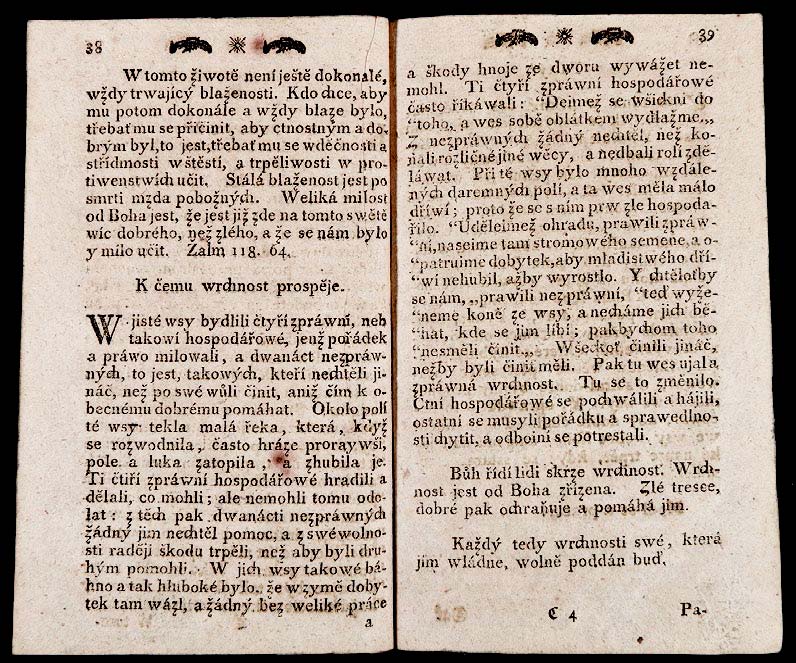 38
W tomto žiwotě není ještě dokonalé,
wždy trwající blaženosti. Kdo chce, aby
mu potom dokonále a wždy blaze bylo,
třebať mu se přičinit, aby ctnostným a do-
brým byl, to jest, třebať mu se wděčnosti a
střídmosti w štěstí, a trpěliwosti w pro-
tiwenstwích učit. Stálá blaženost jest po
smrti mzda pobožných. Weliká milost
od Boha jest, že jest již zde na tomto swětě
wíc dobrého, než zlého, a že se nám bylo
y milo učit. Žalm 118. 64.
K čemu wrchnost prospěje.
W jisté wsy bydlili čtyří zpráwní, neb
takowí hospodářowé, jenž pořádek
a práwo milowali, a dwanáct nezpráw-
ných, to jest, takowých, kteří nechtěli ji-
náč, než po swé wůli činit, aniž čím k o-
becnému dobrému pomáhat. Okolo polí
té wsy tekla malá řeka, která, když
se rozwodnila, často hráze prorawši,
pole a luka zatopila, a zhubila je.
Ti čtiří zpráwní hospodářowé hradili a
dělali, co mohli; ale nemohli tomu odo-
lat: z těch pak dwanácti nezpráwných
žádný jim nechtěl pomoc, a z swéwolno-
sti raději škodu trpěli, než aby byli dru-
hým pomohli. W jich wsy takowé bá-
hno a tak hluboké bylo, že w zymě doby-
tek tam wázl, a žádný bez weliké práce
a
39
a škody hnoje ze dworu wywážet ne-
mohl. Ti čtyří zpráwní hospodářowé
často říkáwali: “Dejmež se wšickni do
“toho, a wes sobě oblátkem wydlažme„
Z nezpráwných žádný nechtěl, než ko-
nali rozličné jiné wěcy, a nedbali rolí zdě-
láwat. Při té wsy bylo mnoho wzdále-
ných daremných polí, a ta wes měla málo
dříwí; proto že se s ním prw zle hospoda-
řilo. “Udělejmež ohradu, prawili zpráw-
“ní, nasejme tam stromowého semene, a o-
“patrujme dobytek, aby mladistwého dří-
“wí nehubil, ažby wyrostlo. Y chtělotby
se nám, „prawili nezpráwní, “teď wyže-
“neme koně ze wsy, a necháme jich bě-
“hat, kde se jim líbí; pakbychom toho
“nesměli činit.„ Wšeckoť činili jináč,
nežby byli činit měli. Pak tu wes ujala
zpráwná wrchnost. Tu se to změnilo.
Ctní hospodářowé se pochwálili a hájili,
ostatní se musyli pořádku a sprawedlno-
sti chytit, a odbojní se potrestali.
Bůh řídí lidi skrze wrchnost. Wrch-
nost jest od Boha zřízena. Zlé tresce,
dobré pak ochraňuje a pomáhá jim.
Každý tedy wrchnosti swé, která
jím wládne, wolně poddán buď.
C 4
Pa-